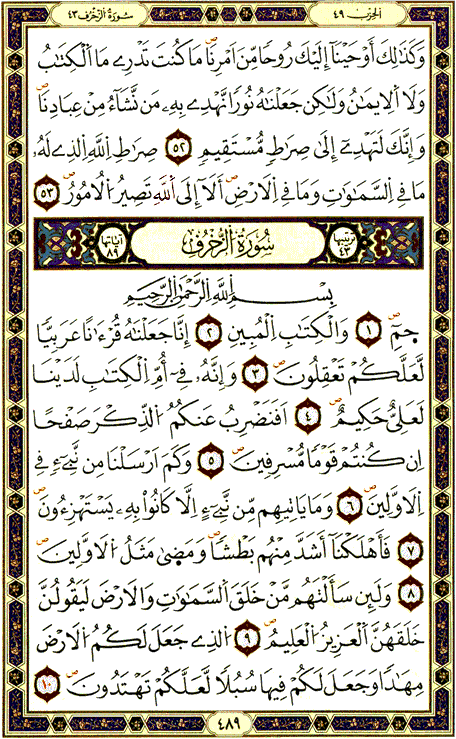 الحزب ٤٩
سورة الزخرف ٤٣
وَكَذَٰلِكَ أَوْحَيْنَآ إِلَيْكَ رُوحًا مِّنَ اَمْرِنَا مَا كُنتَ تَدْرِے مَا اَ۬لْكِتَٰبُ
وَلَا اَ۬لِايمَٰنُ وَلَٰكِن جَعَلْنَٰهُ نُورًا نَّهْدِے بِهِۦ مَن نَّشَآءُ مِنْ عِبَادِنَا
وَإِنَّكَ لَتَهْدِےٓ إِلَىٰ صِرَٰطٍ مُّسْتَقِيمٍ ٥٢ صِرَٰطِ اِ۬للَّهِ اِ۬لذِے لَهُۥ
مَا فِے اِ۬لسَّمَٰوَٰتِ وَمَا فِے اِ۬لَارْضِ أَلَآ إِلَى اَ۬للَّهِ تَصِيرُ اُ۬لُامُورُ ٥٣
ترتيبها ٤٣
سُورَةُ اُ۬لزُّخْرُفِ
آياتها ٨٩
بِسْمِ اِ۬للَّهِ اِ۬لرَّحْمَٰنِ اِ۬لرَّحِيمِ
حمٓ ١ وَالْكِتَٰبِ اِ۬لْمُبِينِ ٢ إِنَّا جَعَلْنَٰهُ قُرْءَٰنًا عَرَبِيًّا
لَّعَلَّكُمْ تَعْقِلُونَ ٣ وَإِنَّهُۥ فِےٓ أُمِّ اِ۬لْكِتَٰبِ لَدَيْنَا
لَعَلِيٌّ حَكِيمٌ ٤ اَفَنَضْرِبُ عَنكُمُ اُ۬لذِّكْرَ صَفْحًا
اِن كُنتُمْ قَوْمًا مُّسْرِفِينَ ٥ وَكَمَ اَرْسَلْنَا مِن نَّبِےٓءٍ فِے
اِ۬لَاوَّلِينَ ٦ وَمَا يَاتِيهِم مِّن نَّبِےٓءٍ اِلَّا كَانُوا۟ بِهِۦ يَسْتَهْزِءُونَ
٧ فَأَهْلَكْنَآ أَشَدَّ مِنْهُم بَطْشًا وَمَضَىٰ مَثَلُ اُ۬لَاوَّلِينَ
٨ وَلَئِن سَأَلْتَهُم مَّنْ خَلَقَ اَ۬لسَّمَٰوَٰتِ وَالَارْضَ لَيَقُولُنَّ
خَلَقَهُنَّ اَ۬لْعَزِيزُ اُ۬لْعَلِيمُ ٩ اُ۬لذِے جَعَلَ لَكُمُ اُ۬لَارْضَ
مِهَٰدًا وَجَعَلَ لَكُمْ فِيهَا سُبُلًا لَّعَلَّكُمْ تَهْتَدُونَ ١٠
٤٨٩